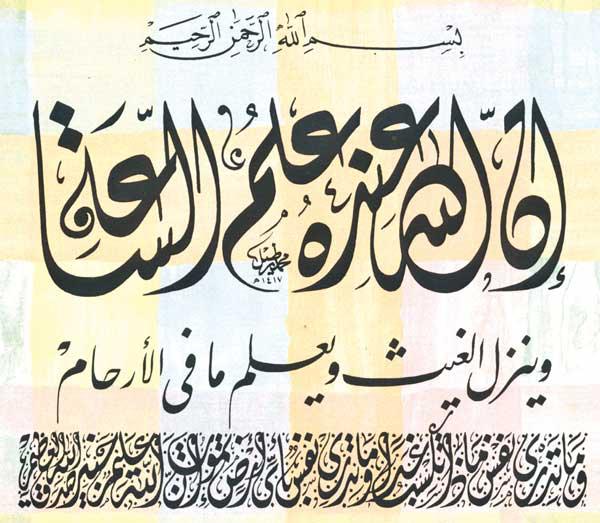 بِسْمِ اللهِ الرَّحْمٰنِ الرَّحِيْمِ
إِنَّ اللهَ عِنْدَهُ عِلْمُ السَّاعَةِ
محمد
١٤١٧هـ
وينزل الغيث ويعلم ما فى الأرحام
وما تدرى نفس ماذا تكسب غدا وما تدرى نفس بأى أرض تموت إن الله عليم خبير صدق الله العظيم